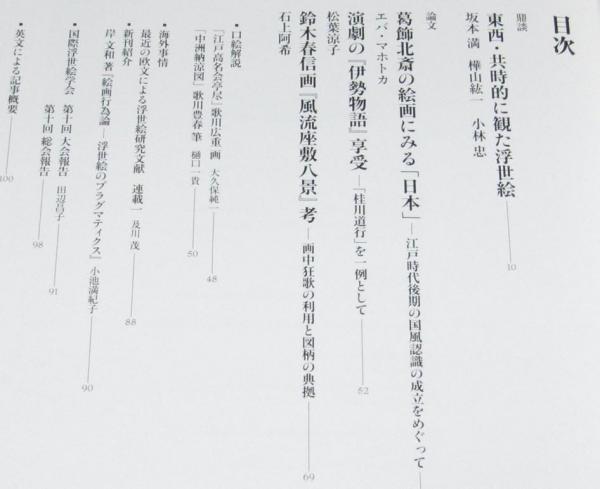 目次
鼎談
東西・共時的に観た浮世絵 10
坂本 満 樺山紘一 小林 忠
論文
葛飾北斎の絵画にみる「日本」―江戸時代後期の国風認識の成立をめぐって
エバ・マホトカ
演劇の『伊勢物語』享受―「桂川道行」を一例として 52
松葉涼子
鈴木春信画『風流座敷八景』考―画中狂歌の利用と図柄の典拠 69
石上阿希
・口絵解説
「江戸高名会亭尽」歌川広重 画 大久保純一 48
「中洲納涼図」歌川豊春 筆 樋口一貴 50
・海外事情
最近の欧文による浮世絵研究文献 連載一 及川 茂 88
・新刊紹介
岸 文和 著『絵画行為論―浮世絵のプラグマティクス』 小池満紀子 90
・国際浮世絵学会 第十回 大会報告 田辺昌子 91
第十回 総会報告 98
・英文による記事概要 100